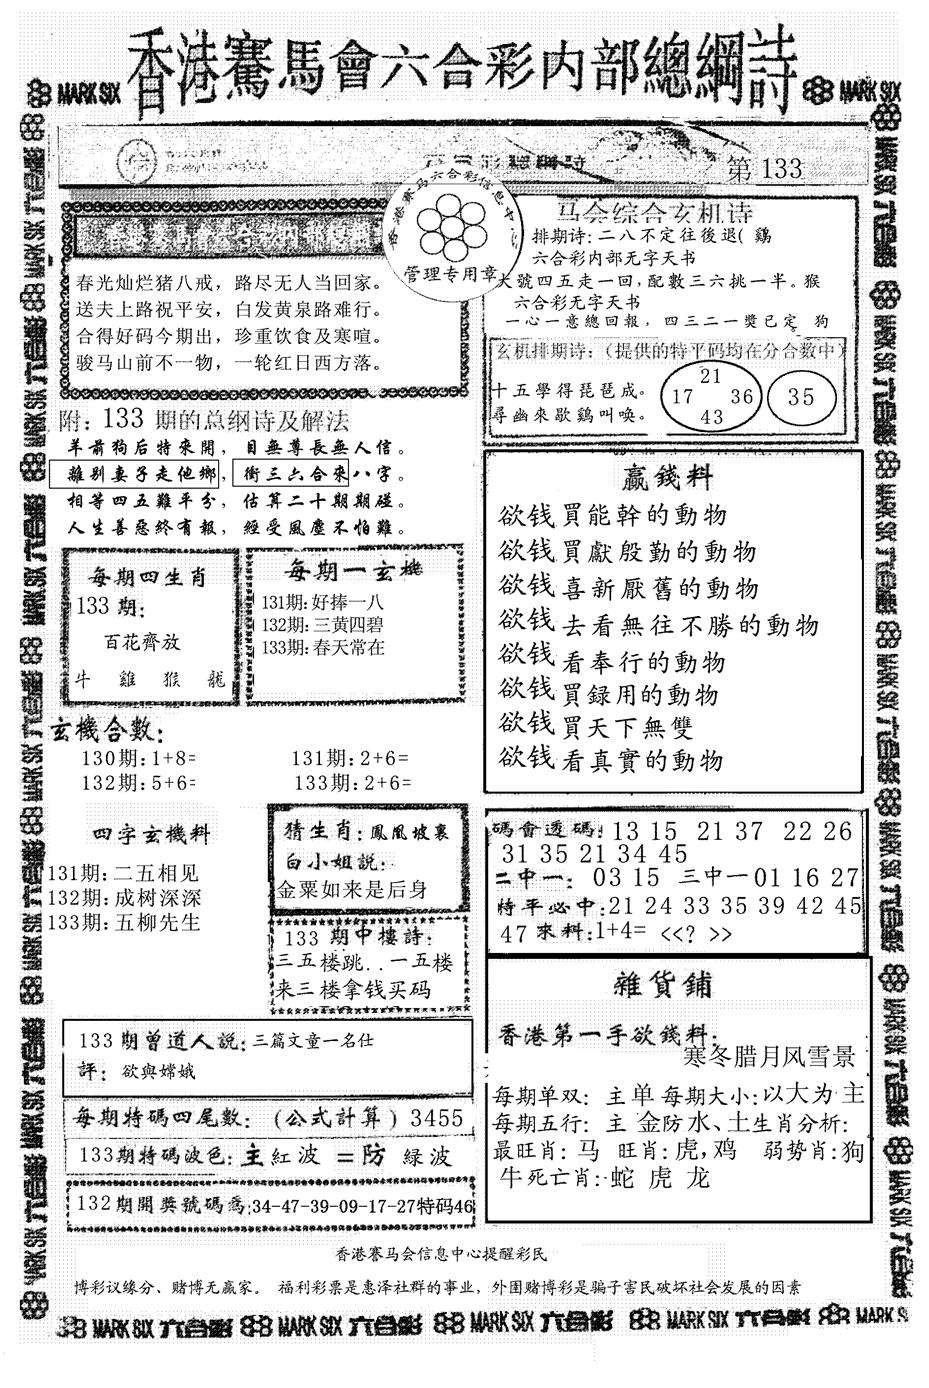 香港賽馬會六合彩内部總綱詩
MARK SIX
MARK SIX
第 133
香港赛马六合彩信息中
管理专用章
春光灿烂猪八戒，路尽无人当回家。
送夫上路祝平安，白发黄泉路难行。
合得好码今期出，珍重饮食及寒喧。
骏马山前不一物，一轮红日西方落。
附：133 期的总纲诗及解法
羊前狗后特來開，目無尊長無人信。
離别妻子走他鄉，衝三六合來八字。
相等四五難平分，估算二十期期碰。
人生善惡終有報，經受風塵不怕難。
每期四生肖
133 期：
百花齊放
牛 雞 猴 龍
每期一玄機
131期：好捧一八
132期：三黄四碧
133期：春天常在
玄機合數：
130期：1+8= 131期：2+6=
132期：5+6= 133期：2+6=
四字玄機料
131期：二五相见
132期：成树深深
133期：五柳先生
猜生肖：鳳凰坡裏
白小姐説：
金粟如来是后身
133 期中樓詩：
三五楼跳..一五楼
来三楼拿钱买码
133期曾道人説：三篇文童一名仕
評： 欲與嫦娥
每期特碼四尾數：（公式計算）3455
133期特碼波色：主紅波 =防 緑波
132期開獎號碼爲:34-47-39-09-17-27特码46
马会综合玄机诗
排期诗：二八不定往後退( 鷄
六合彩内部无字天书
大號四五走一回，配數三六挑一半。猴
六合彩无字天书
一心一意總回報，四三二一獎已定 狗
玄机排期诗：（提供的特平码均在分合數中）
十五學得琵琶成。
尋幽來歇鷄叫唤。
21
17 36
43
35
赢錢料
欲钱買能幹的動物
欲钱買獻殷勤的動物
欲钱喜新厭舊的動物
欲钱去看無往不勝的動物
欲钱看奉行的動物
欲钱買録用的動物
欲钱買天下無雙
欲钱看真實的動物
碼會透碼：13 15 21 37 22 26
31 35 21 34 45
二中一： 03 15 三中一01 16 27
特平必中：21 24 33 35 39 42 45
47 來料：1+4= <<? >>
雜貨鋪
香港第一手欲錢料：
寒冬腊月风雪景
每期单双： 主单 每期大小：以大为主
每期五行： 主 金防水、土生肖分析：
最旺肖：马 旺肖：虎，鸡 弱势肖：狗
牛死亡肖：蛇 虎 龙
香港赛马会信息中心提醒彩民
博彩议缘分、赌博无赢家。 福利彩票是惠泽社群的事业，外围赌博彩是骗子害民破坏社会发展的因素
MARK SIX 六合彩 MARK SIX 六合彩 MARK SIX 六合彩 MARK SIX 六合彩 MARK SIX